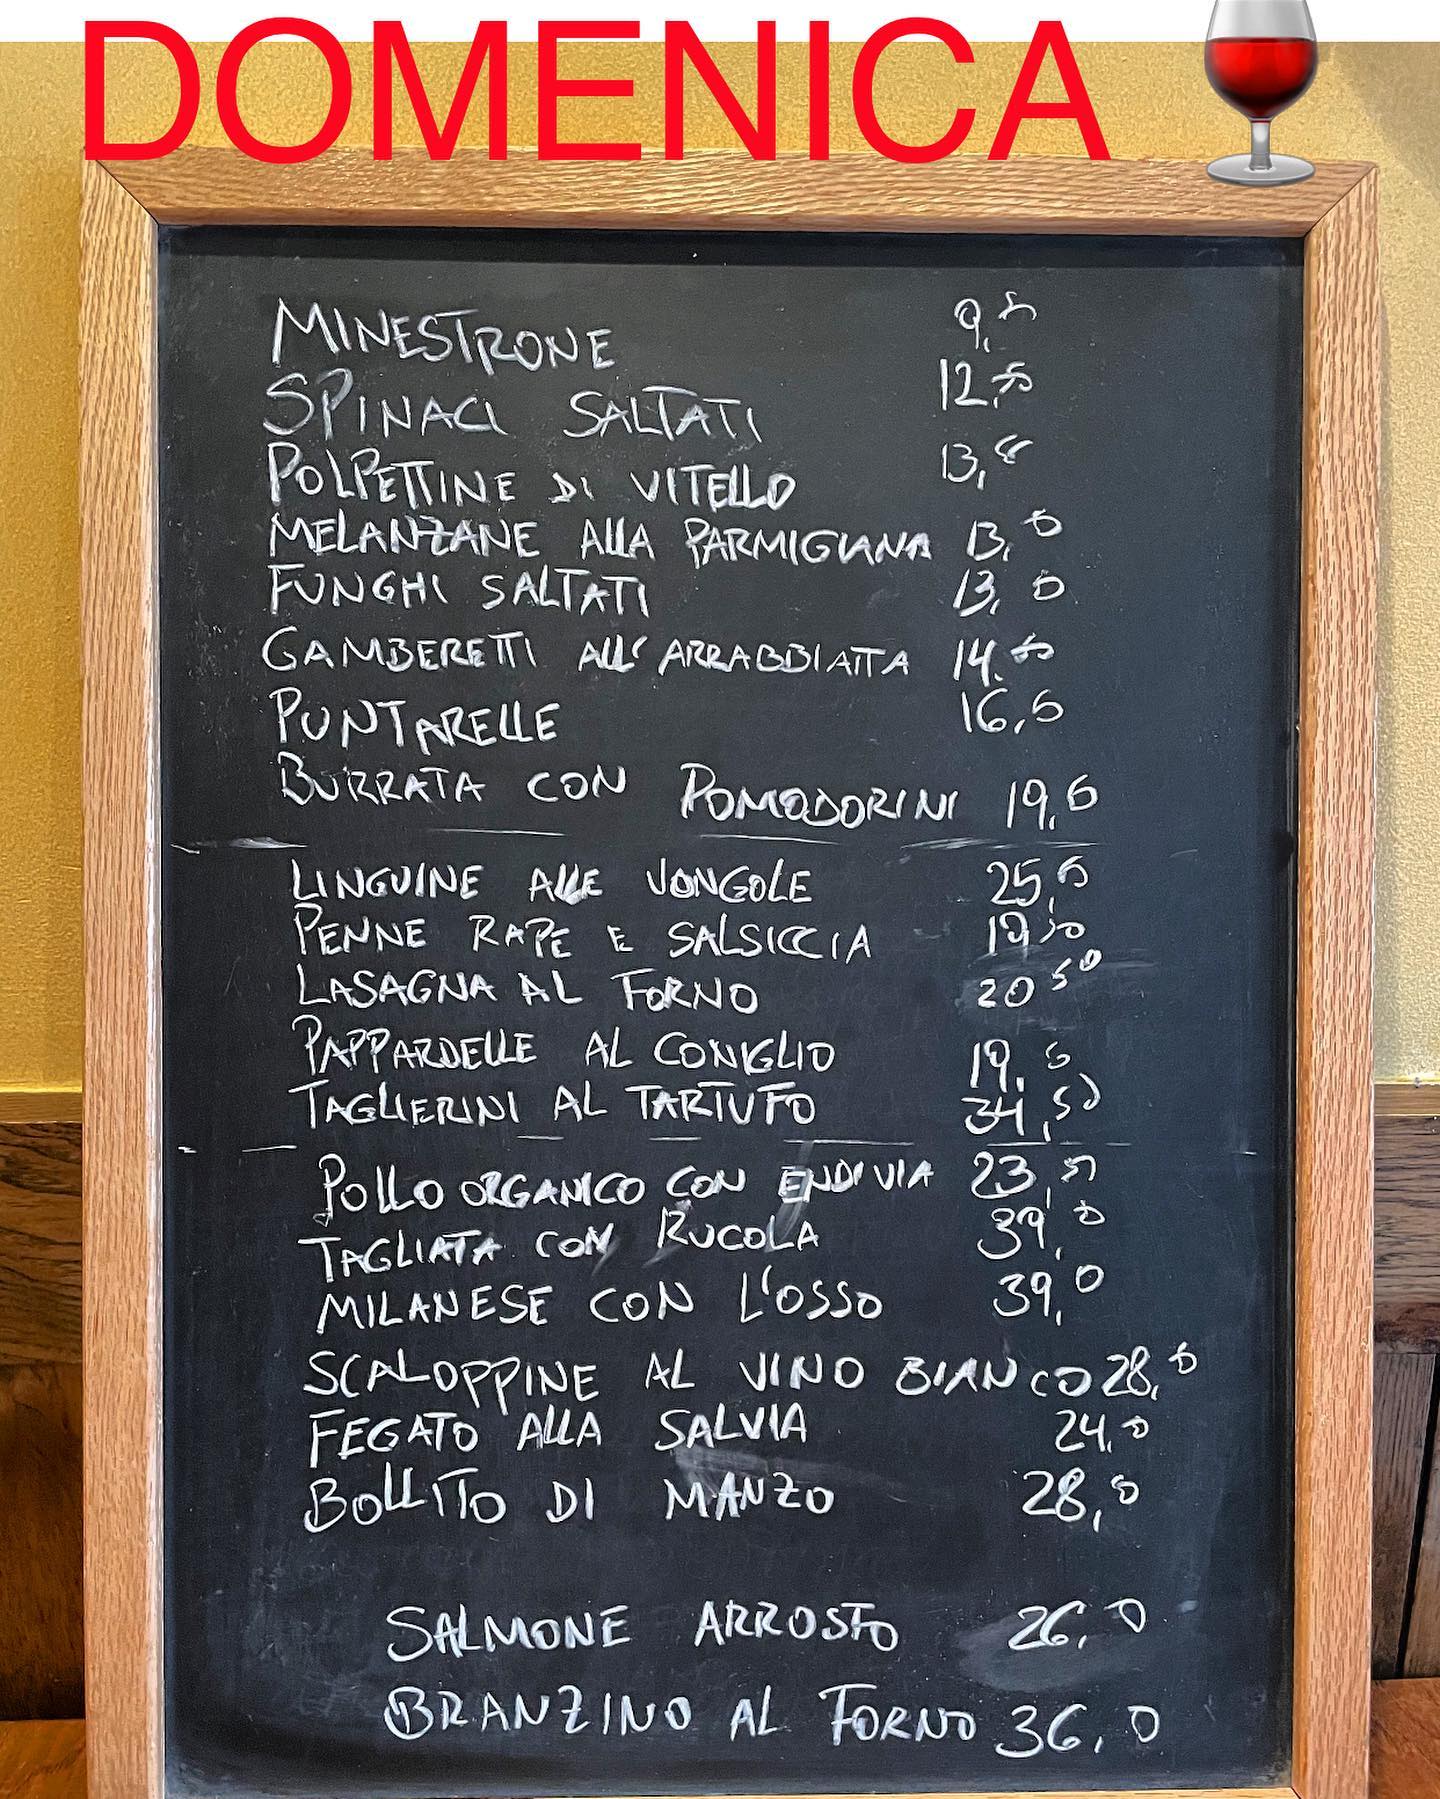 DOMENICA
MINESTRONE 9,5
SPINACI SALTATI 12,50
POLPETTINE DI VITELLO 13,5
MELANZANE ALLA PARMIGIANA 13,0
FUNGHI SALTATI 13,0
GAMBERETTI ALL'ARRABBIATTA 14.50
PUNTARELLE 16,5
BURRATA CON POMODORINI 19,6
LINGUINE ALLE VONGOLE 25,5
PENNE RAPE E SALSICCIA 19,50
LASAGNA AL FORNO 20 50
PAPPARDELLE AL CONIGLIO 19,5
TAGLIERINI AL TARTUFO 34,50
POLLO ORGANICO CON ENDIVIA 23,50
TAGLIATA CON RUCOLA 39,0
MILANESE CON L'OSSO 39,0
SCALOPPINE AL VINO BIANCO 28,0
FEGATO ALLA SALVIA 24,0
BOLLITO DI MANZO 28,0
SALMONE ARROSTO 26,0
BRANZINO AL FORNO 36,0